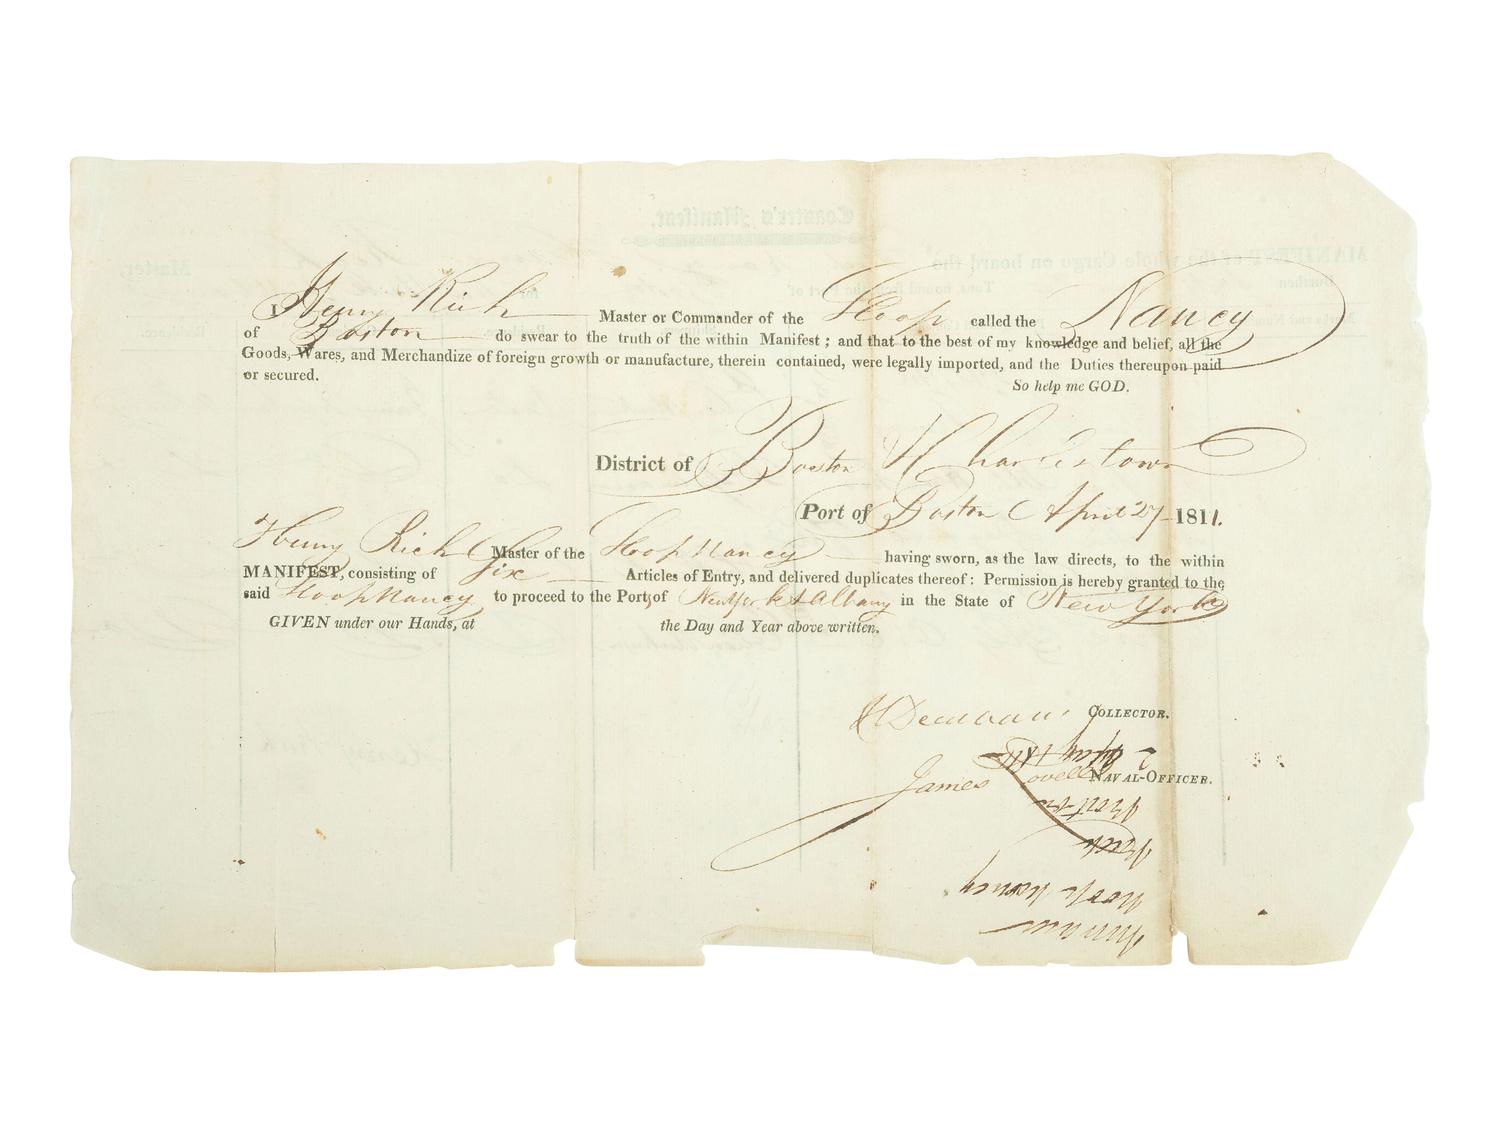 I Henry Rich Master or Commander of the Sloop called the Nancy
of Boston do swear to the truth of the within Manifest ; and that to the best of my knowledge and belief, all the
Goods, Wares, and Merchandize of foreign growth or manufacture, therein contained, were legally imported, and the Duties thereupon paid
or secured.
So help me GOD.
District of Boston & Charlestown
Port of Boston April 27 1811.
Henry Rich Master of the Sloop Nancy having sworn, as the law directs, to the within
MANIFEST, consisting of Six Articles of Entry, and delivered duplicates thereof : Permission is hereby granted to the
said Sloop Nancy to proceed to the Port of New York & Albany in the State of New York
GIVEN under our Hands, at the Day and Year above written.
COLLECTOR.
James Lovell NAVAL-OFFICER.
Sloop Nancy
Rich
Boston